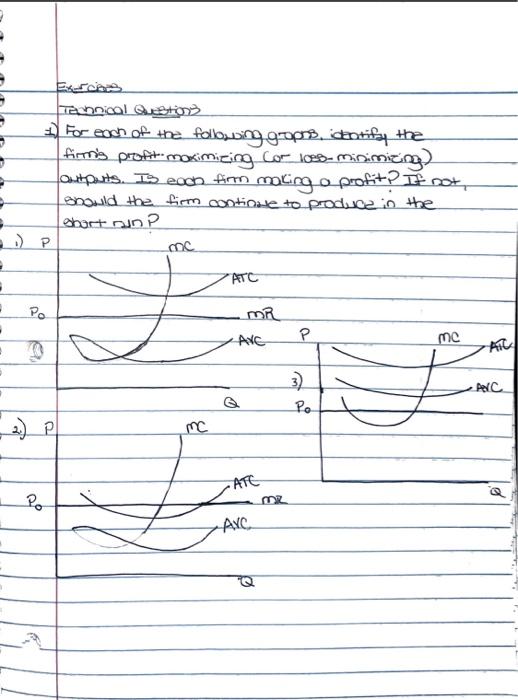 Exercises
Technical Questions
1) For each of the following graphs, identify the
firm's profit-maximizing (or loss-minimizing)
outputs. Is each firm making a profit? If not,
should the firm continue to produce in the
short run?
1) P
MC
ATC
P₀
MR
AVC
Q
2) P
MC
ATC
P₀
MR
AVC
Q
3)
P
MC
ATC
AVC
P₀
Q